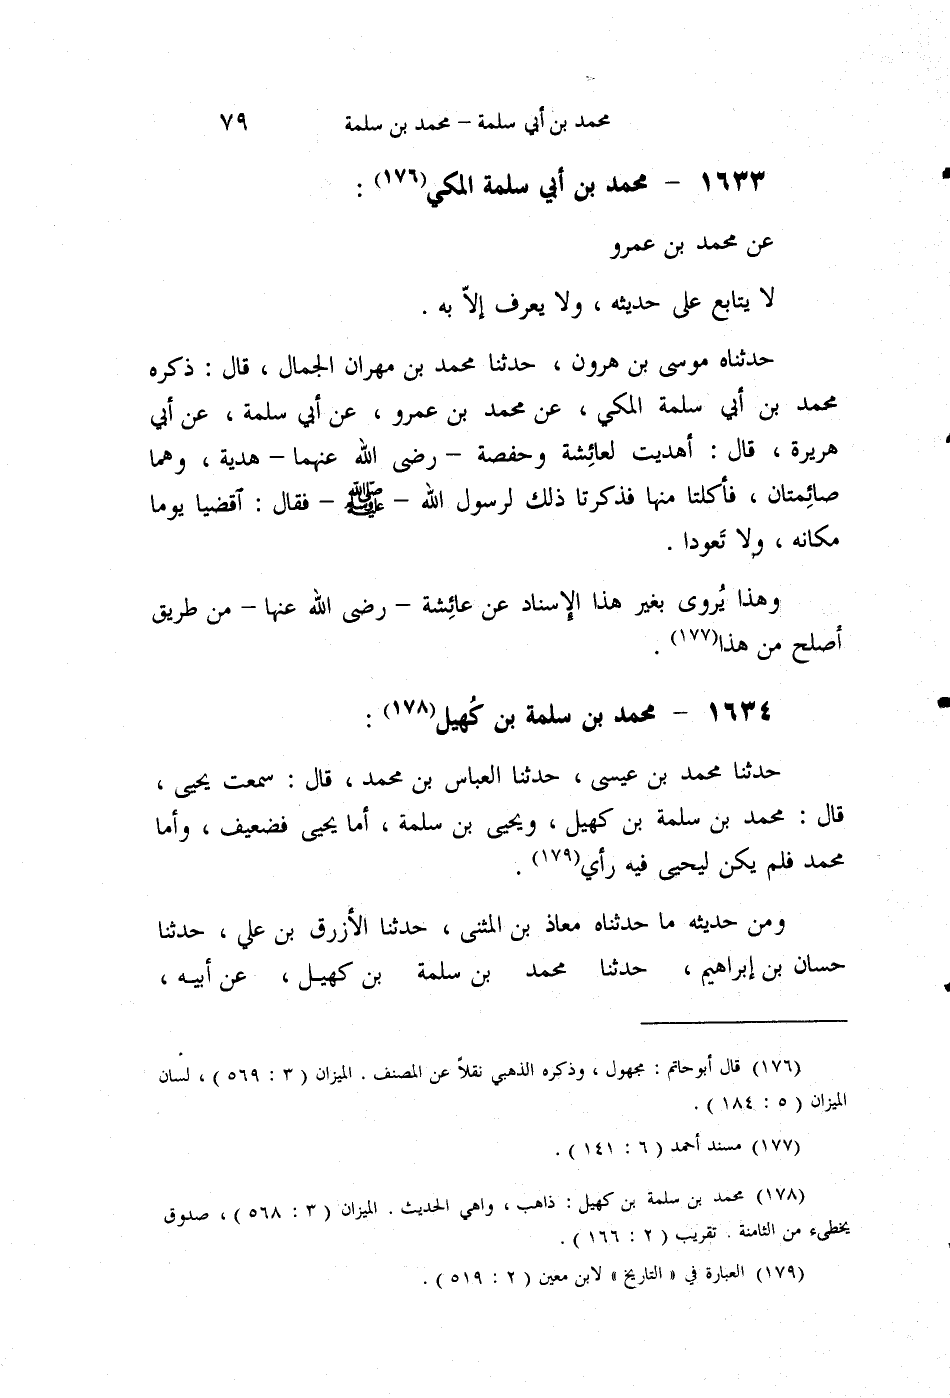 محمد بن أبي سلمة – محمد بن سلمة ٧٩
١٦٣٣ – محمد بن أبي سلمة المكي(١٧٦) :
عن محمد بن عمرو
لا يتابع على حديثه ، ولا يعرف إلاّ به .
حدثناه موسى بن هرون ، حدثنا محمد بن مهران الجمال ، قال : ذكره
محمد بن أبي سلمة المكي ، عن محمد بن عمرو ، عن أبي سلمة ، عن أبي
هريرة ، قال : أهديت لعائِشة وحفصة – رضى الله عنهما – هدية ، وهما
صائِمتان ، فأكلتا منها فذكرتا ذلك لرسول الله – ﷺ – فقال : آقضيا يوما
مكانه ، ولا تَعودا .
وهذا يُروى بغير هذا الإسناد عن عائِشة – رضى الله عنها – من طريق
أصلح من هذا(١٧٧) .
١٦٣٤ – محمد بن سلمة بن كُهيل(١٧٨) :
حدثنا محمد بن عيسى ، حدثنا العباس بن محمد ، قال : سمعت يحيى ،
قال : محمد بن سلمة بن كهيل ، ويحيى بن سلمة ، أما يحيى فضعيف ، وأما
محمد فلم يكن ليحيى فيه رأي(١٧٩) .
ومن حديثه ما حدثناه معاذ بن المثنى ، حدثنا الأزرق بن علي ، حدثنا
حسان بن إبراهيم ، حدثنا محمد بن سلمة بن كهيـل ، عن أبيـه ،
(١٧٦) قال أبوحاتم : مجهول ، وذكره الذهبي نقلاً عن المصنف . الميزان ( ٣ : ٥٦٩ ) ، لسان
الميزان ( ٥ : ١٨٤ ) .
(١٧٧) مسند أحمد ( ٦ : ١٤١ ) .
(١٧٨) محمد بن سلمة بن كهيل : ذاهب ، واهي الحديث . الميزان ( ٣ : ٥٦٨ ) ، صدوق
يخطىء من الثامنة . تقريب ( ٢ : ١٦٦ ) .
(١٧٩) العبارة في « التاريخ » لابن معين ( ٢ : ٥١٩ ) .